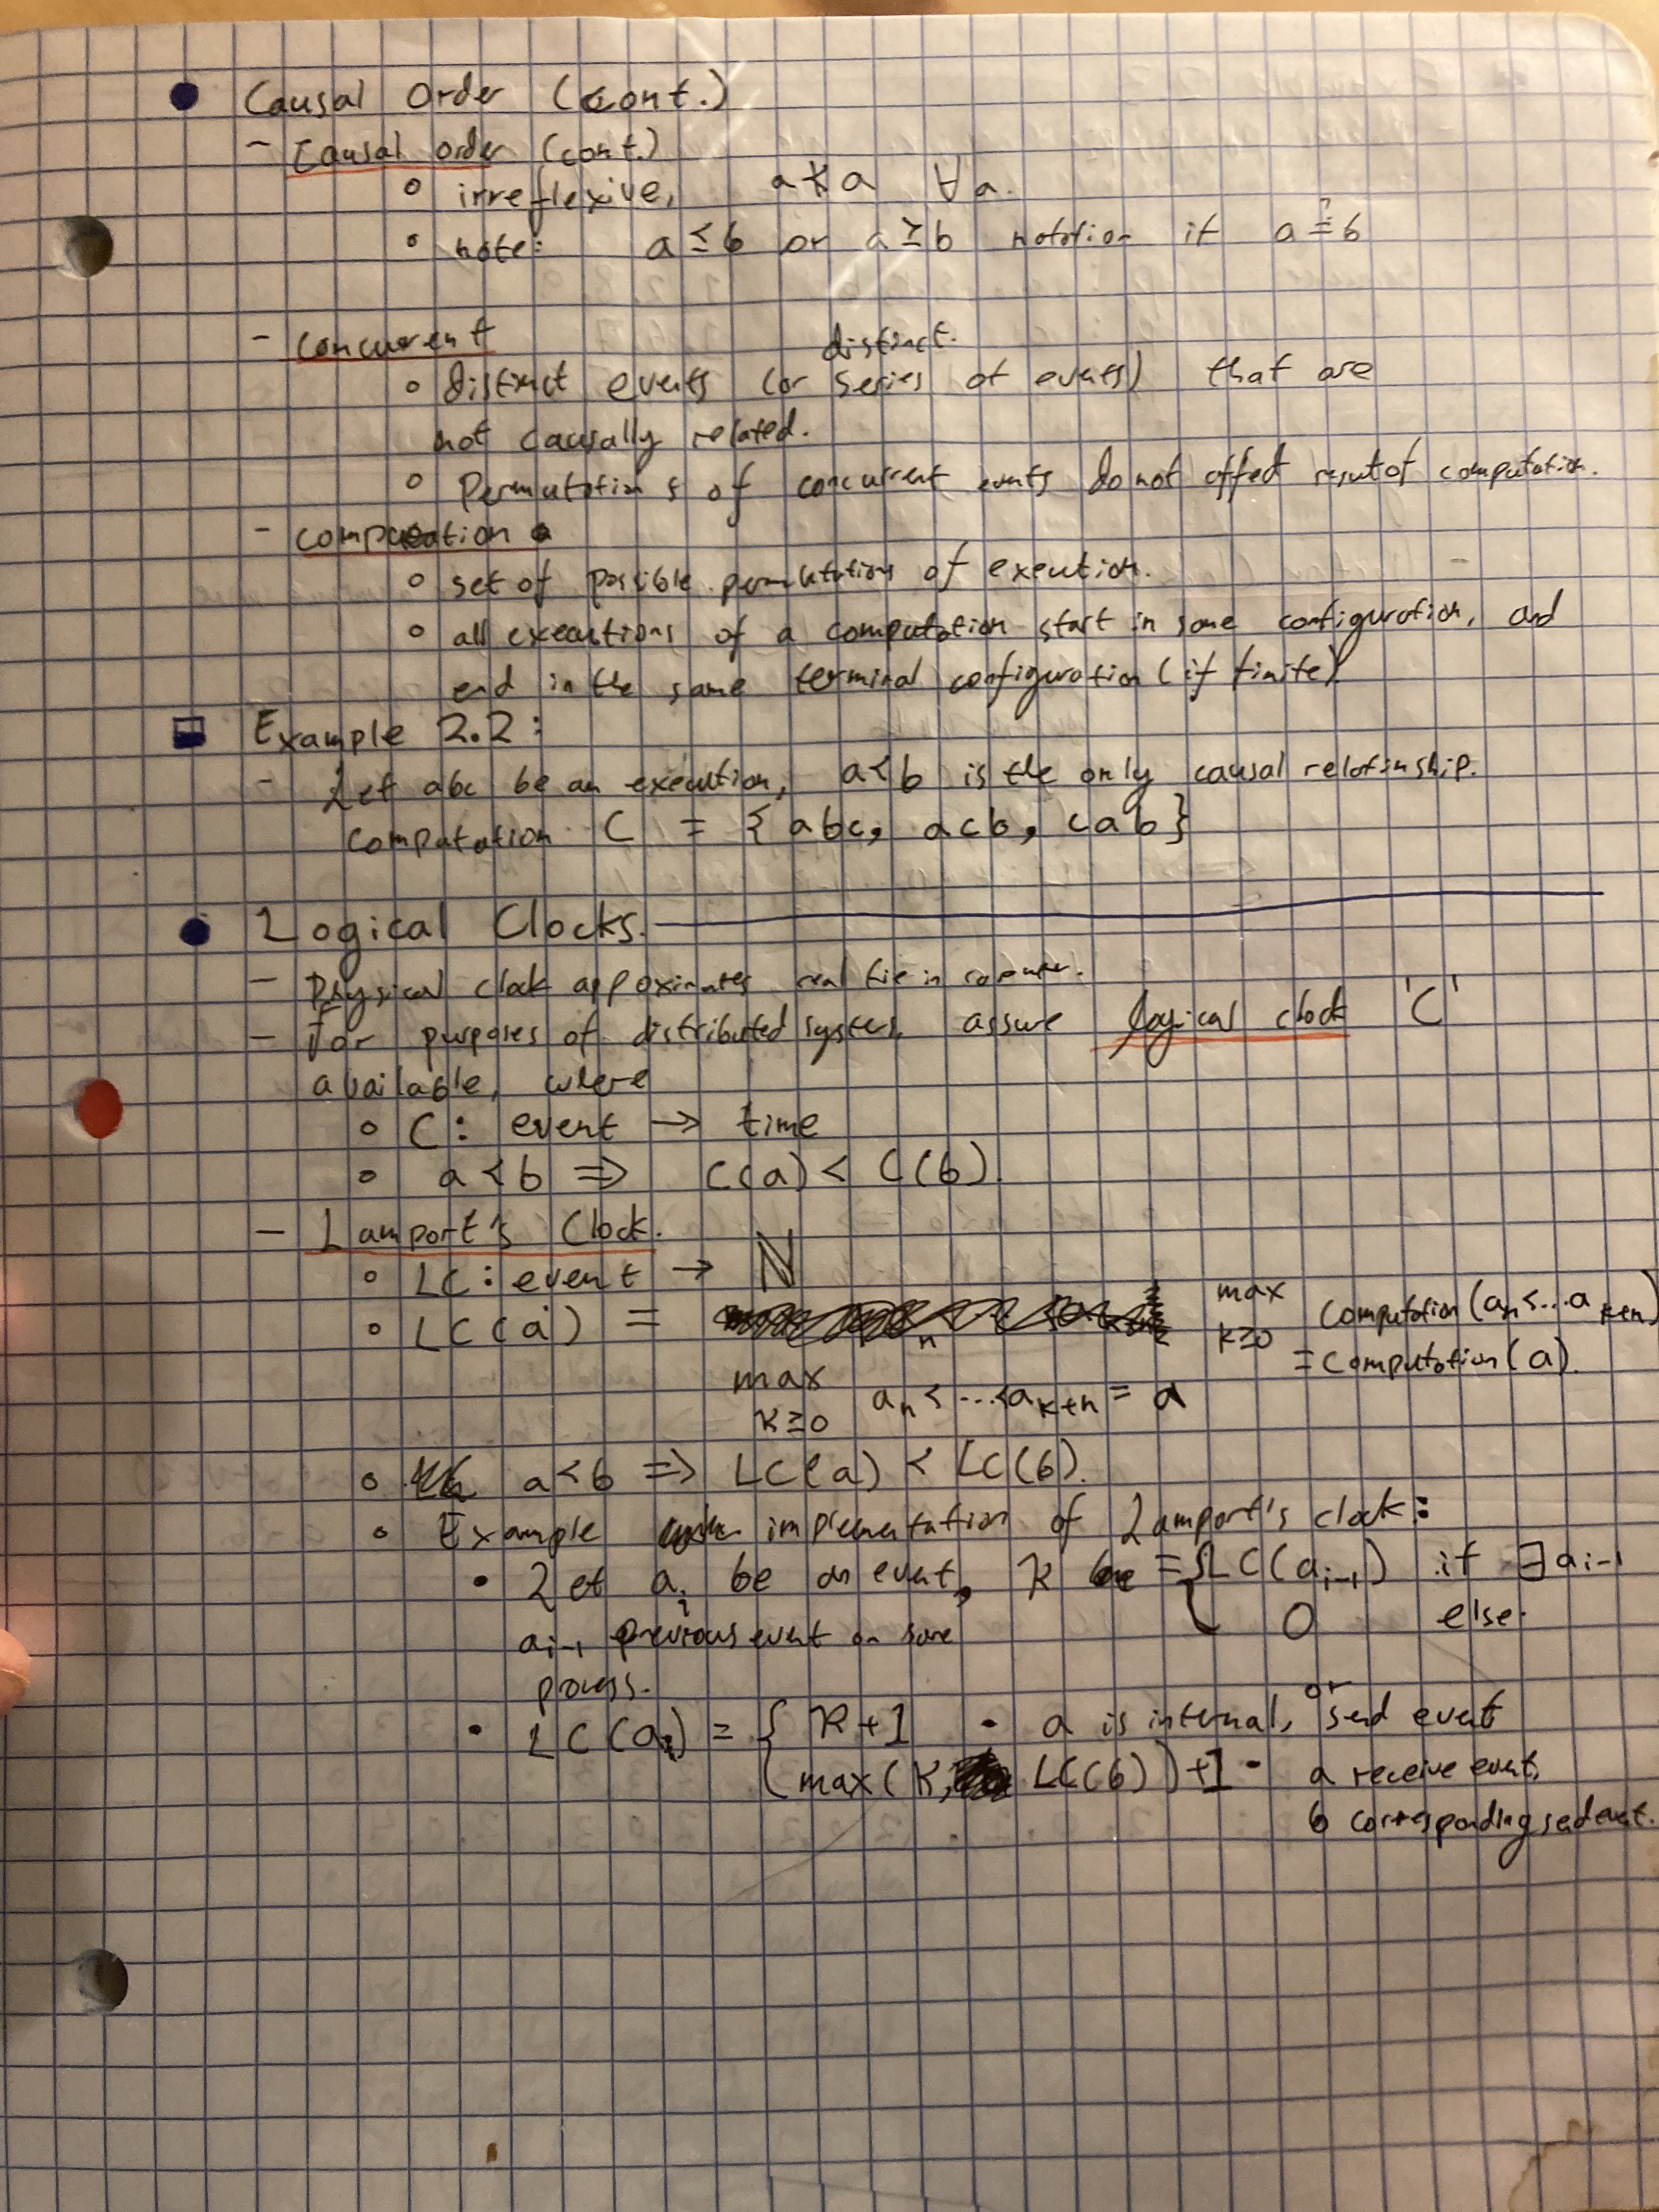 Causal Order (cont.)
- Causal order (cont.)
◦ irreflexive, a ⊀ a ∀a.
◦ note: a ⪯ b or a ⪰ b notation if a ≟ b
- concurrent
distinct.
◦ distinct events (or series of events) that are
not causally related.
◦ Permutations of concurrent events do not affect result of computation.
- computation
◦ set of possible permutations of execution.
◦ all executions of a computation start in same configuration, and
end in the same terminal configuration (if finite)
Example 2.2:
- Let abc be an execution, a<b is the only causal relationship.
Computation C = {abc, acb, cab}
Logical Clocks.
- Physical clock approximates real time in computer.
- For purposes of distributed systems, assume logical clock 'C'
available, where
◦ C: event → time
◦ a<b ⇒ C(a) < C(b).
- Lamport's Clock.
◦ LC: event → ℕ
◦ LC(a) = max k≥0 computation(aₙ<...aₖ₊ₙ)
= computation(a).
max k≥0 aₙ<...<aₖ₊ₙ = a
◦ a<b ⇒ LC(a) < LC(b).
◦ Example implementation of Lamport's clock:
• Let aᵢ be an event, k = { LC(aᵢ₋₁) if ∃aᵢ₋₁
aᵢ₋₁ previous event on same 0 else.
process.
• LC(aᵢ) = { k+1 • a is internal, or send event
max(k, LC(b))+1 • a receive event,
b corresponding send event.